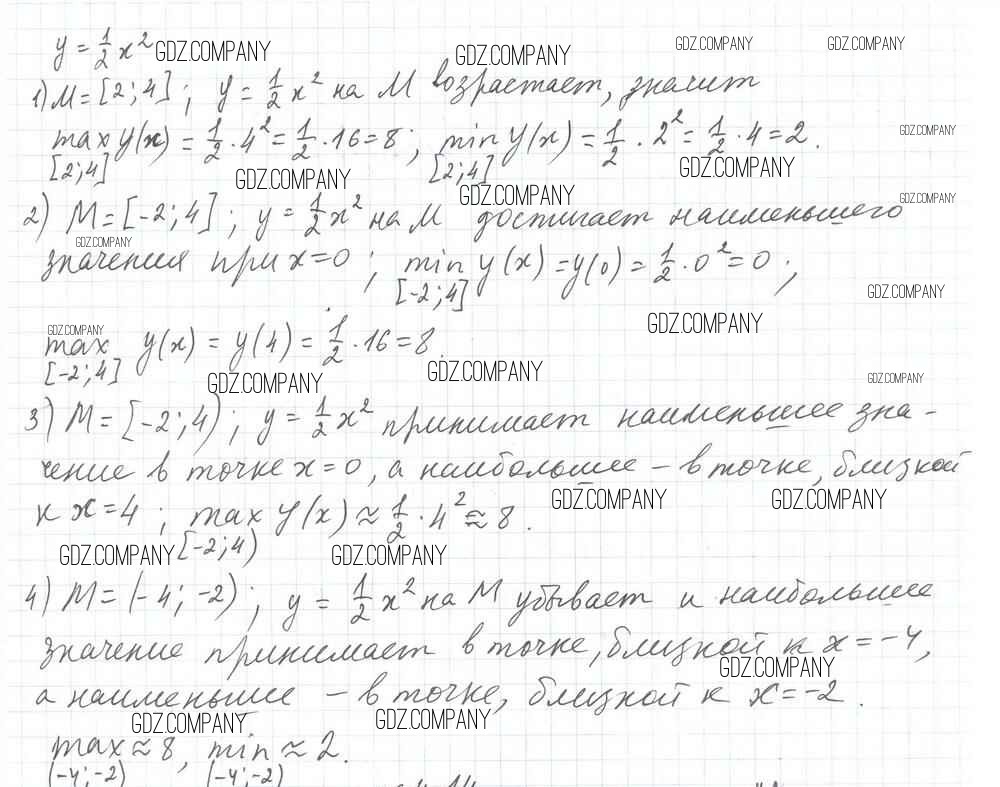 y = 1/2 x² GDZ.COMPANY GDZ.COMPANY GDZ.COMPANY GDZ.COMPANY
1) M = [2; 4] ; y = 1/2 x² на М возрастает, значит
max y(x) = 1/2 · 4² = 1/2 · 16 = 8 ; min y(x) = 1/2 · 2² = 1/2 · 4 = 2 . GDZ.COMPANY
[2;4] GDZ.COMPANY [2;4] GDZ.COMPANY GDZ.COMPANY
2) M = [-2; 4] ; y = 1/2 x² на М достигает наименьшего GDZ.COMPANY
GDZ.COMPANY
значения при x = 0 ; min y(x) = y(0) = 1/2 · 0² = 0 ;
[-2;4] GDZ.COMPANY
GDZ.COMPANY GDZ.COMPANY
max y(x) = y(4) = 1/2 · 16 = 8.
[-2;4] GDZ.COMPANY GDZ.COMPANY GDZ.COMPANY
3) M = [-2; 4) ; y = 1/2 x² принимает наименьшее зна-
чение в точке x = 0, а наибольшее – в точке, близкой
к x = 4 ; max y(x) ≈ 1/2 · 4² ≈ 8 . GDZ.COMPANY GDZ.COMPANY
GDZ.COMPANY [-2;4) GDZ.COMPANY
4) M = (-4; -2) ; y = 1/2 x² на М убывает и наибольшее
значение принимает в точке, близкой к x = -4,
GDZ.COMPANY
а наименьшее – в точке, близкой к x = -2 .
GDZ.COMPANY GDZ.COMPANY
max ≈ 8, min ≈ 2.
(-4;-2) (-4;-2)